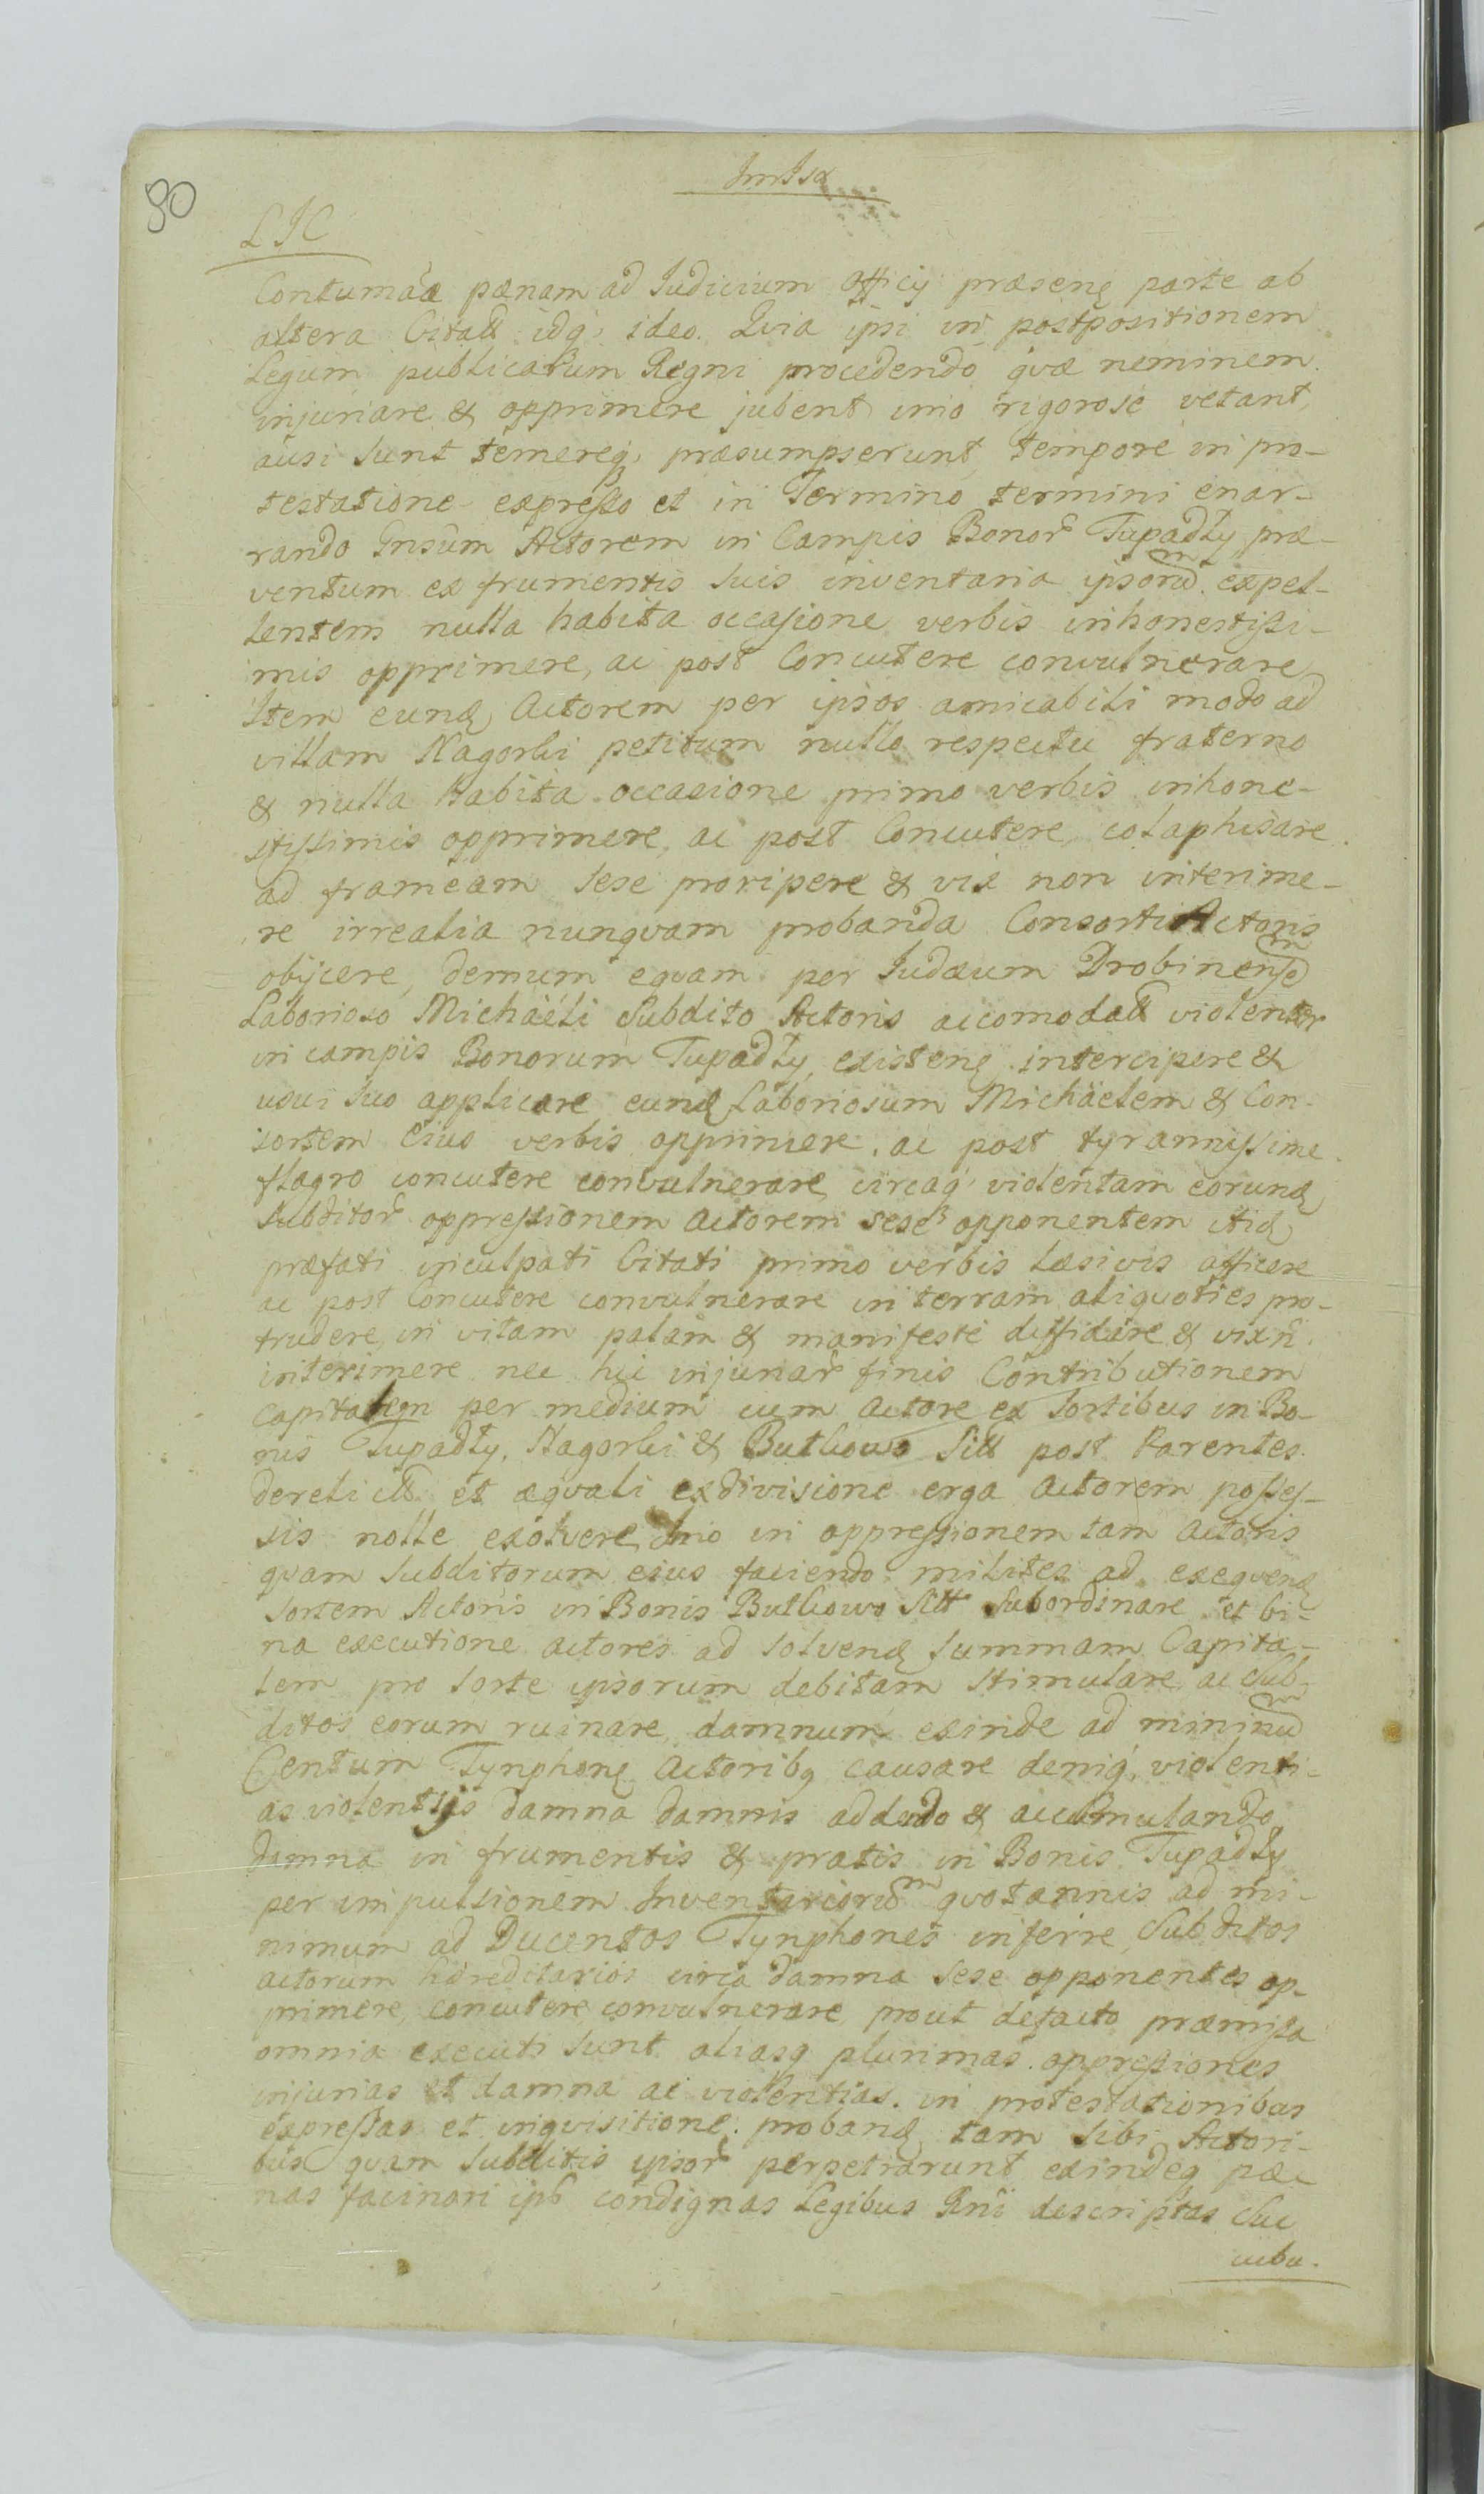 90
LJC
Contumaciæ pænam ad Judicium Officij præsenę parte ab
altera Citatt idq, ideo. Quia ipsi in postpositionem
Legum publicarum Regni procedendo qvæ neminem
injuriare & opprimere jubent imo rigorosè vetant,
ausi sunt temereq, præsumpserunt, tempore in pro-
testatione expresso et in Termino termini enar-
rando Gnsûm Actorem in Campis Bonor Tupadły præ-
ventum ex frumentis suis inventaria ipsorum expel-
lentem nulla habita occasione verbis inhonestissi-
mis opprimere, ac post Concutere convulnerare,
Item eund Actorem per ipsos amicabili modo ad
villam Nagorki petitum nullo respectu fraterno
& nulla habita occasione primo verbis inhone-
stissimis opprimere, ac post Concutere, colaphisare
ad frameam sese proripere & vix non interime-
re irrealia nunqvam probanda Consorti Actoris
obijcere, demum eqvam per Judæum Drobinensem
Laborioso Michaëli Subdito Actoris accomodatt violenter
in campis Bonorum Tupadły existenę intercipere &
usui suo applicare eund Laboriosum Michäelem & Con-
sortem Eius verbis opprimere, ac post tyrannissime
flagro concutere convulnerare, circaq violentam eorund
Subditor oppressionem Actorem sese opponentem itid
præfati inculpati Citati primo verbis læsivis afficere
ac post Concutere convulnerare in terram aliquoties pro-
trudere, in vitam palam & manifestè diffidare & vix n̄
interimere nec hic injuriar finis Contributionem
Capitalem per medium cum Actore ex Sortibus in Bo-
nis Tupadły, Nagorki & Butkowo Sitt post Parentes
derelictt et æqvali exdivisione erga Actorem posses-
sis nolle exolvere, Imo in oppressionem tam Actoris
qvam Subditorum eius faciendo milites ad exeqvend
Sortem Actoris in Bonis Butkowo Sitt Subordinare et bi-
na executione actores ad solvend Summam Capita-
lem pro Sorte ipsorum debitam stimulare, ac Sub-
ditos eorum ruinare, damnum exinde ad minimum
Centum Tynphonę Actoribq causare deniq, violenti-
as violentijs damna damnis addendo & accumulando,
damna in frumentis & pratis in Bonis Tupadły
per impulsionem Inventariorum qvotannis ad mi-
nimum ad Ducentos Tynphones inferre, Subditos
actorum hæreditarios circa damna sese opponentes op-
primere, concutere, convulnerare, prout defacto præmissa
omnia executi sunt aliasq plurimas oppressiones
injurias et damna ac violentias in protestationibus
expressas et inqvisitione proband tam Sibi Actori-
bus qvam Subditis ipsor perpetrarunt exindeq pæ-
nas facinori ips condignas Legibus Rnî descriptas Suc
cubu.